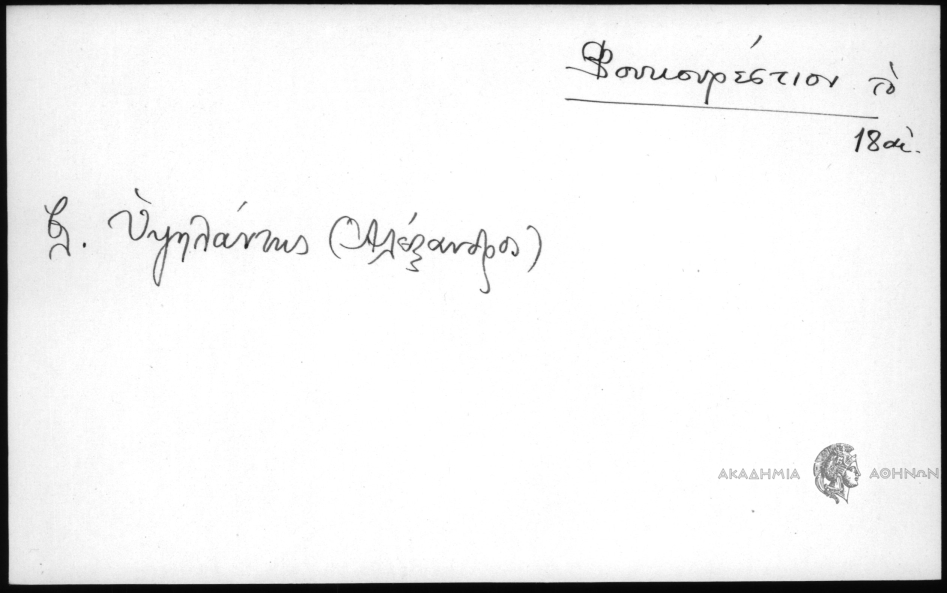 Βουκουρέστιον τὸ
18 αἰ.
βλ. Ὑψηλάντης (Ἀλέξανδρος)
ΑΚΑΔΗΜΙΑ ΑΘΗΝΩΝ